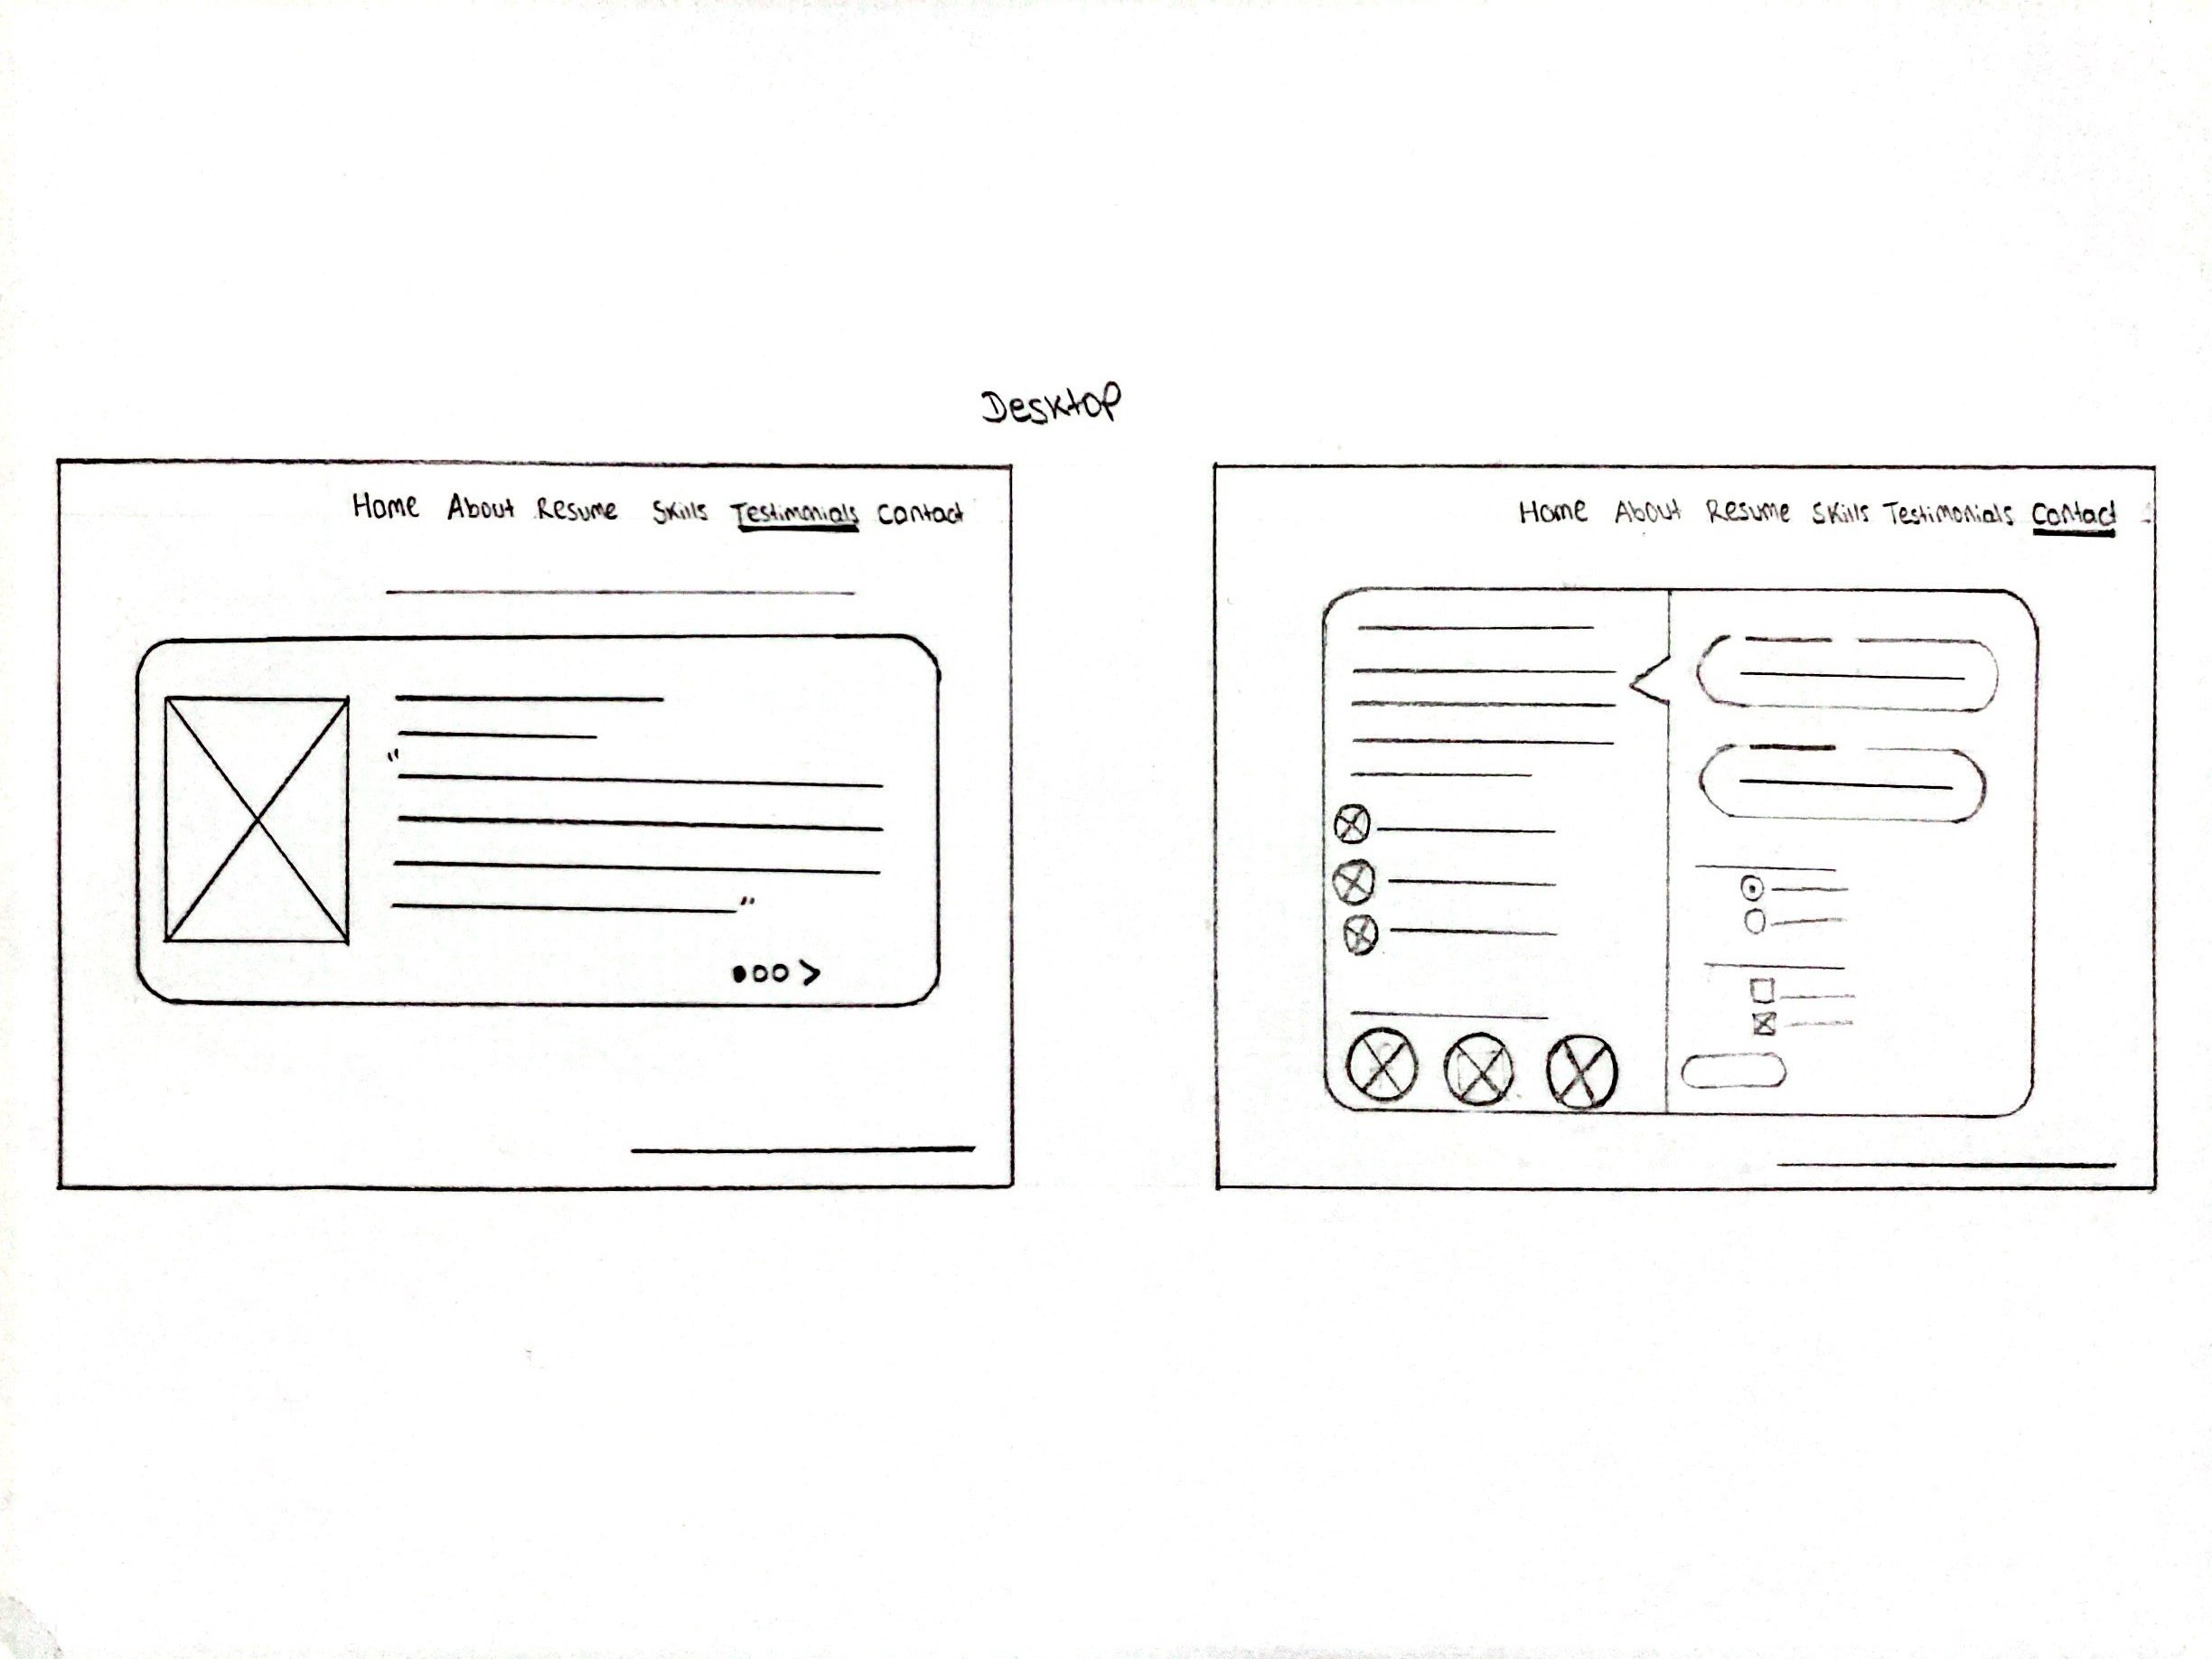 Desktop
Home About Resume Skills Testimonials Contact
Home About Resume Skills Testimonials Contact
“
”